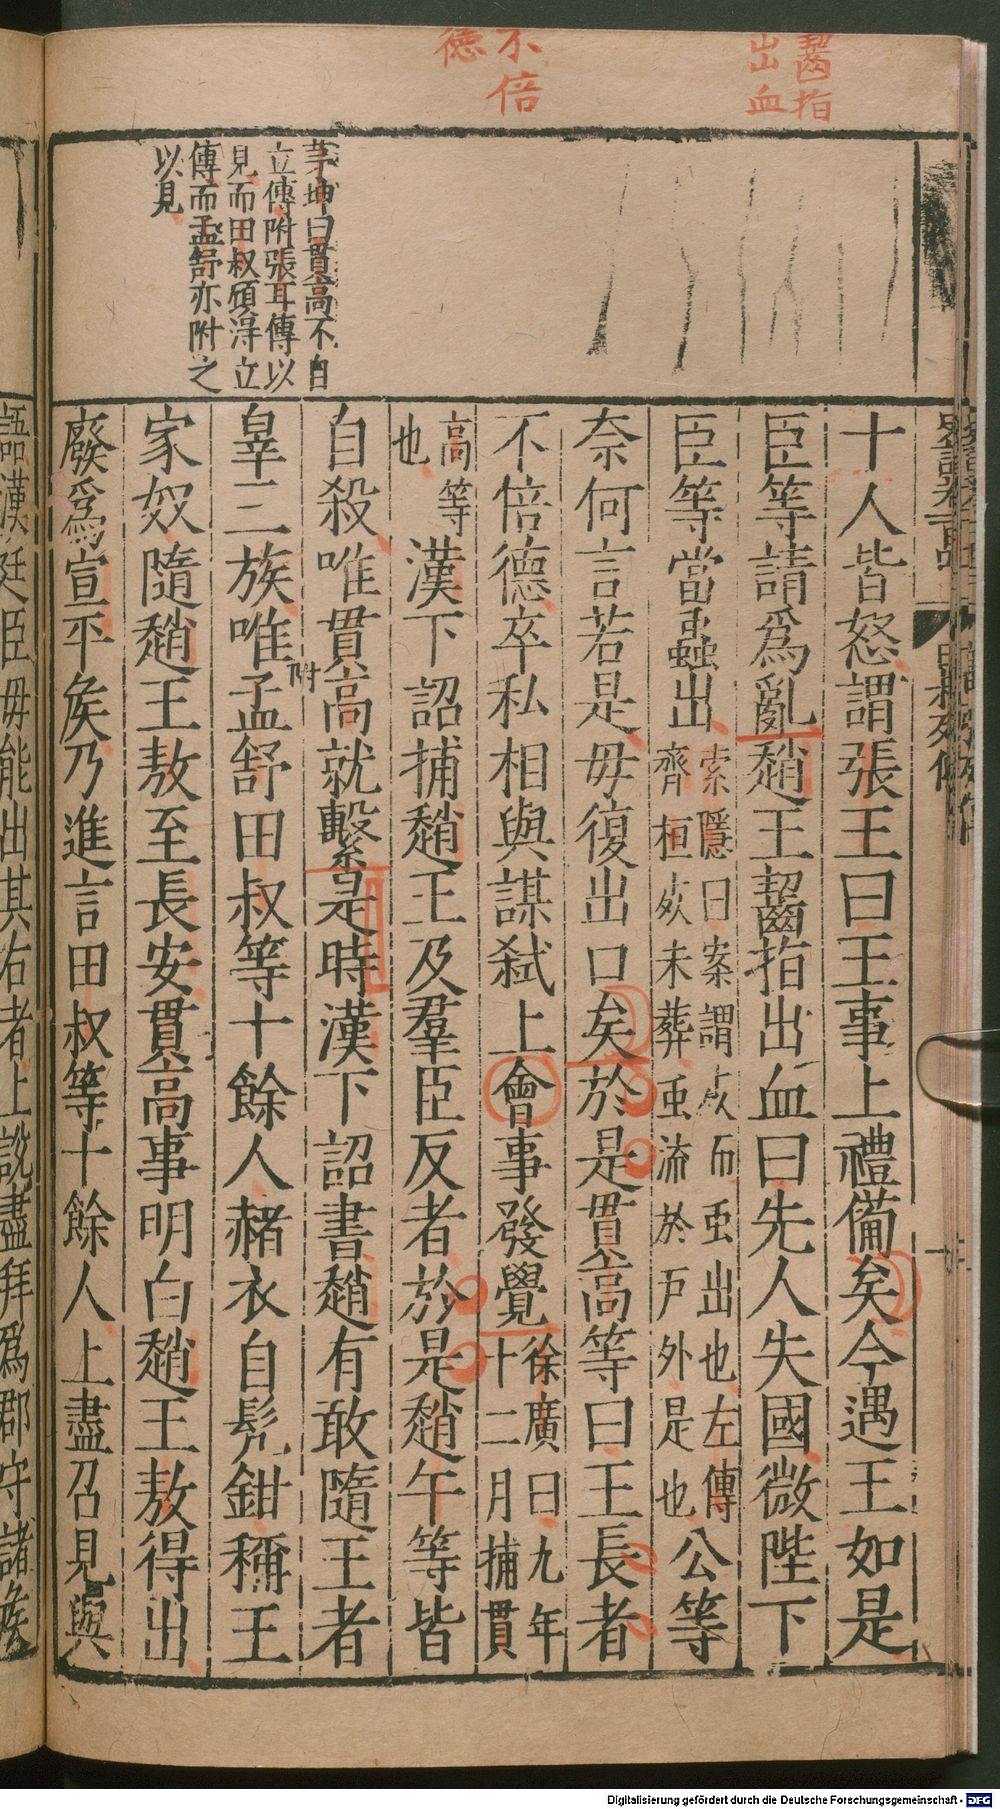 齧指
出血
不倍
德
茅坤曰貫高不自
立傳附張耳傳以
見而田叔頋淂立
傳而孟舒亦附之
以見
十人皆怒謂張王曰王事上禮備矣今遇王如是
臣等請爲亂趙王齧指出血曰先人失國微陛下
臣等當蟲出索隱曰案謂死而䖝出也左傳齊桓死未葬䖝流於戸外是也公等
奈何言若是毋復出口矣於是貫高等曰王長者
不倍德卒私相與謀弑上會事發覺徐廣曰九年十二月捕貫
高等也漢下詔捕趙王及羣臣反者於是趙午等皆
自殺唯貫高就繫是時漢下詔書趙有敢隨王者
辠三族唯孟舒田叔等十餘人赭衣自髠鉗稱王
附
家奴隨趙王敖至長安貫高事明白趙王敖得出
廢爲宣平矦乃進言田叔等十餘人上盡召見與
語漢廷臣毋能出其右者上說盡拜爲郡守諸矦
Digitalisierung gefördert durch die Deutsche Forschungsgemeinschaft - DFG